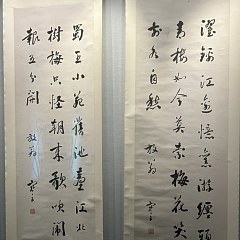 濯錦江邊憶舊游纏頭
青樓如今莫索梅花笑
前各自愁
放翁
蜀王小苑舊池臺江北
樹梅只怪朝來歌吹鬧
報五分開
放翁